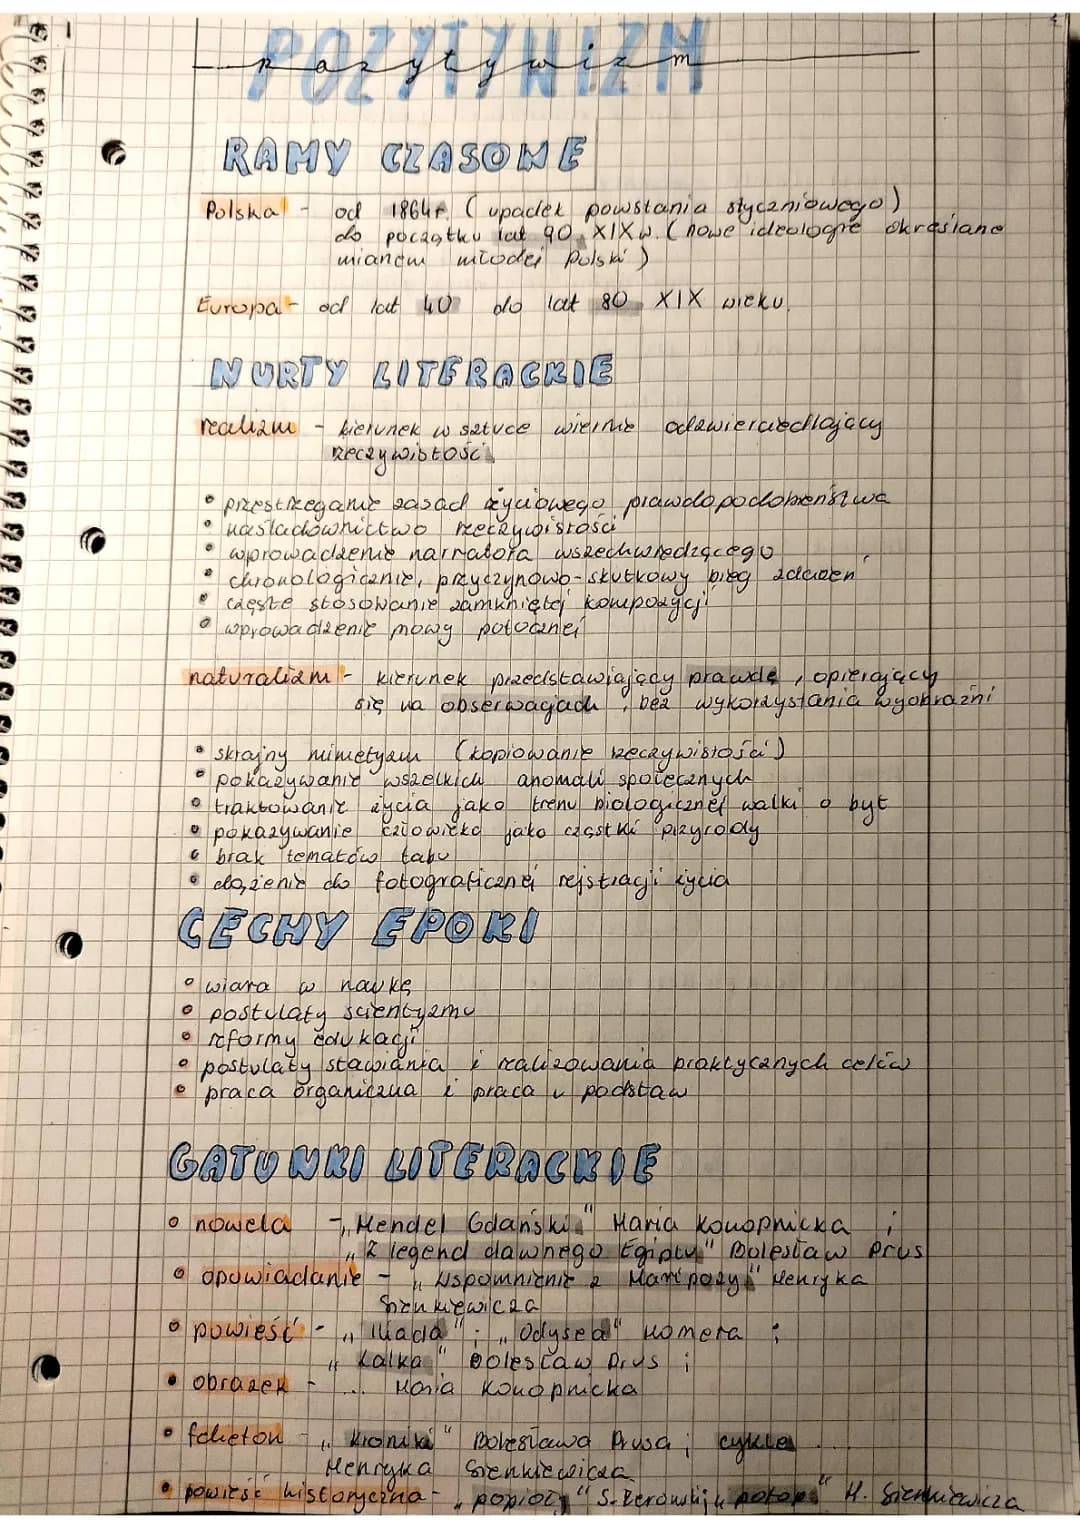 POZYTYWIZM
pozytywizm
RAMY CZASOWE
Polska - od 1864r. (upadek powstania styczniowego)
do początku lat 90. XIX w. (nowe ideologie określane
mianem młodej Polski)
Europa - od lat 40 do lat 80 XIX wieku.
NURTY LITERACKIE
realizm - kierunek w sztuce wiernie odzwierciedlający
rzeczywistość
• przestrzeganie zasad życiowego prawdopodobieństwa
• naśladownictwo rzeczywistości
• wprowadzenie narratora wszechwiedzącego
• chronologicznie, przyczynowo-skutkowy bieg zdarzeń
• częste stosowanie zamkniętej kompozycji
• wprowadzenie mowy potocznej
naturalizm - kierunek przedstawiający prawdę, opierający
się na obserwacjach, bez wykorzystania wyobraźni
• skrajny mimetyzm (kopiowanie rzeczywistości)
• pokazywanie wszelkich anomali społecznych
• traktowanie życia jako trenu biologicznej walki o byt
• pokazywanie człowieka jako cząstki przyrody
• brak tematów tabu
• dążenie do fotograficznej rejstracji życia
CECHY EPOKI
• wiara w naukę
• postulaty scientyzmu
• reformy edukacji
• postulaty stawiania i realizowania praktycznych celów
• praca organiczna i praca u podstaw
GATUNKI LITERACKIE
• nowela - „Mendel Gdański" Maria Konopnicka ;
„Z legend dawnego Egiptu" Bolesław Prus
• opowiadanie - „Wspomnienie z Maripozy" Henryka
Sienkiewicza
• powieść - „Iliada" ; „Odysea" Homera ;
„Lalka" Bolesław Prus ;
• obrazek - ... Maria Konopnicka
• felieton - „Kroniki" Bolesława Prusa ; cykle ...
Henryka Sienkiewicza
• powieść historyczna - „popioły" S. Żeromskij „potop" H. Sienkiewicza